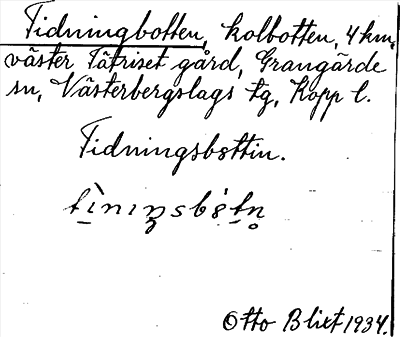 Tidningbotten, kolbotten, 4 km.
väster Tätriset gård, Grangärde
sn, Västerbergslags tg, Kopp l.
Tidningsbottin.
Otto Blixt 1934.